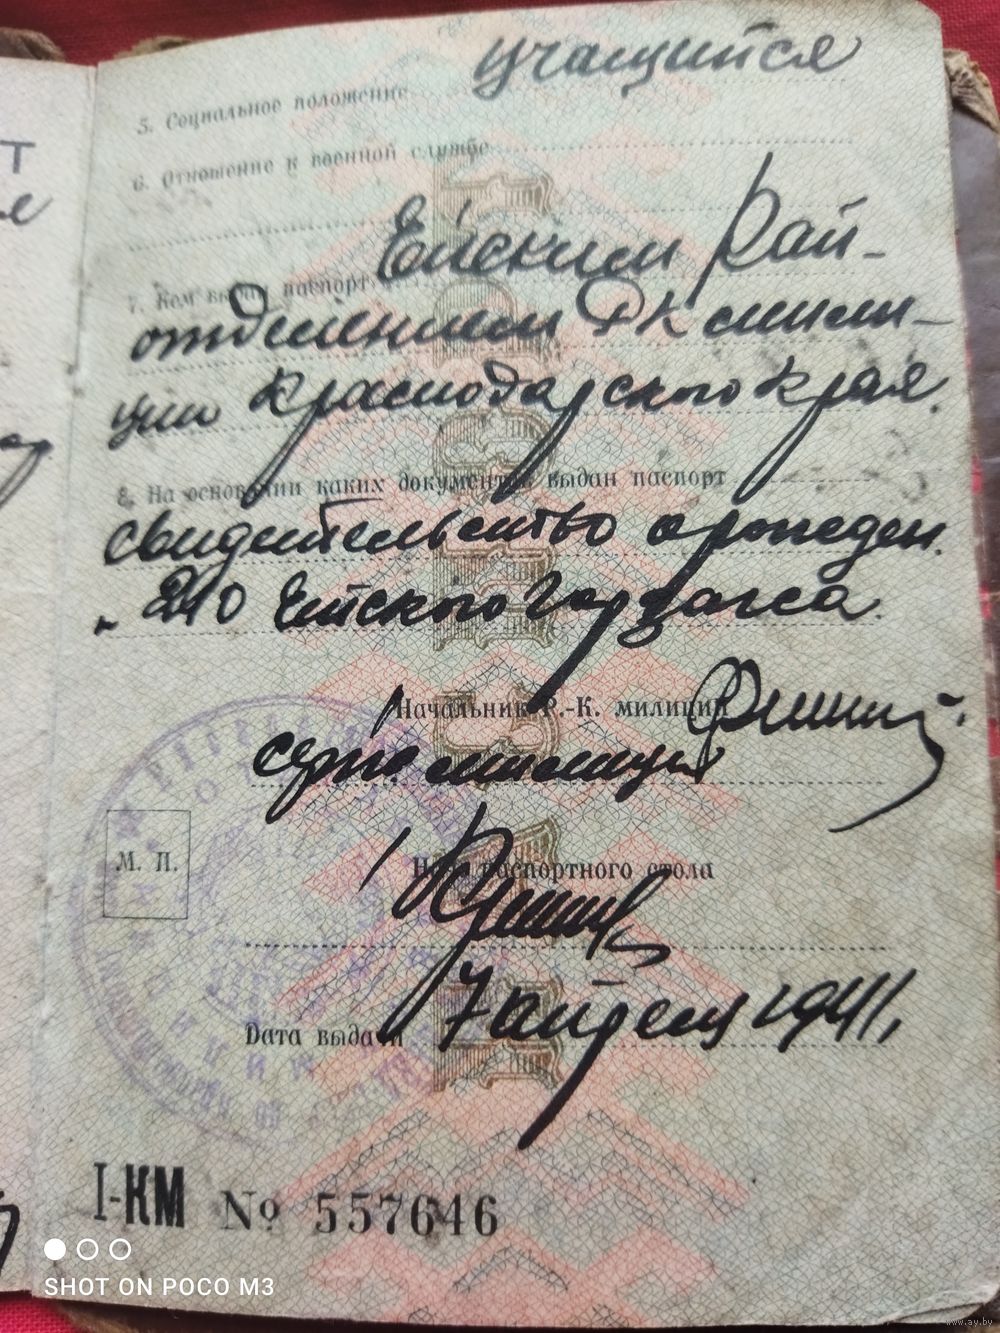 учащийся
5. Социальное положение
6. Отношение к военной службе
Ейским Рай-
7. Кем выдан паспорт
отделением РК милици-
ции Краснодарского края.
8. На основании каких документов выдан паспорт
свидетельство о рожден.
240 Ейского Горзагса.
Начальник Р.-К. милиции
милиции
М. П.
Нач. паспортного стола
Дата выдачи 7 апреля 1941,
I-КМ № 557646
SHOT ON POCO M3
www.ay.by